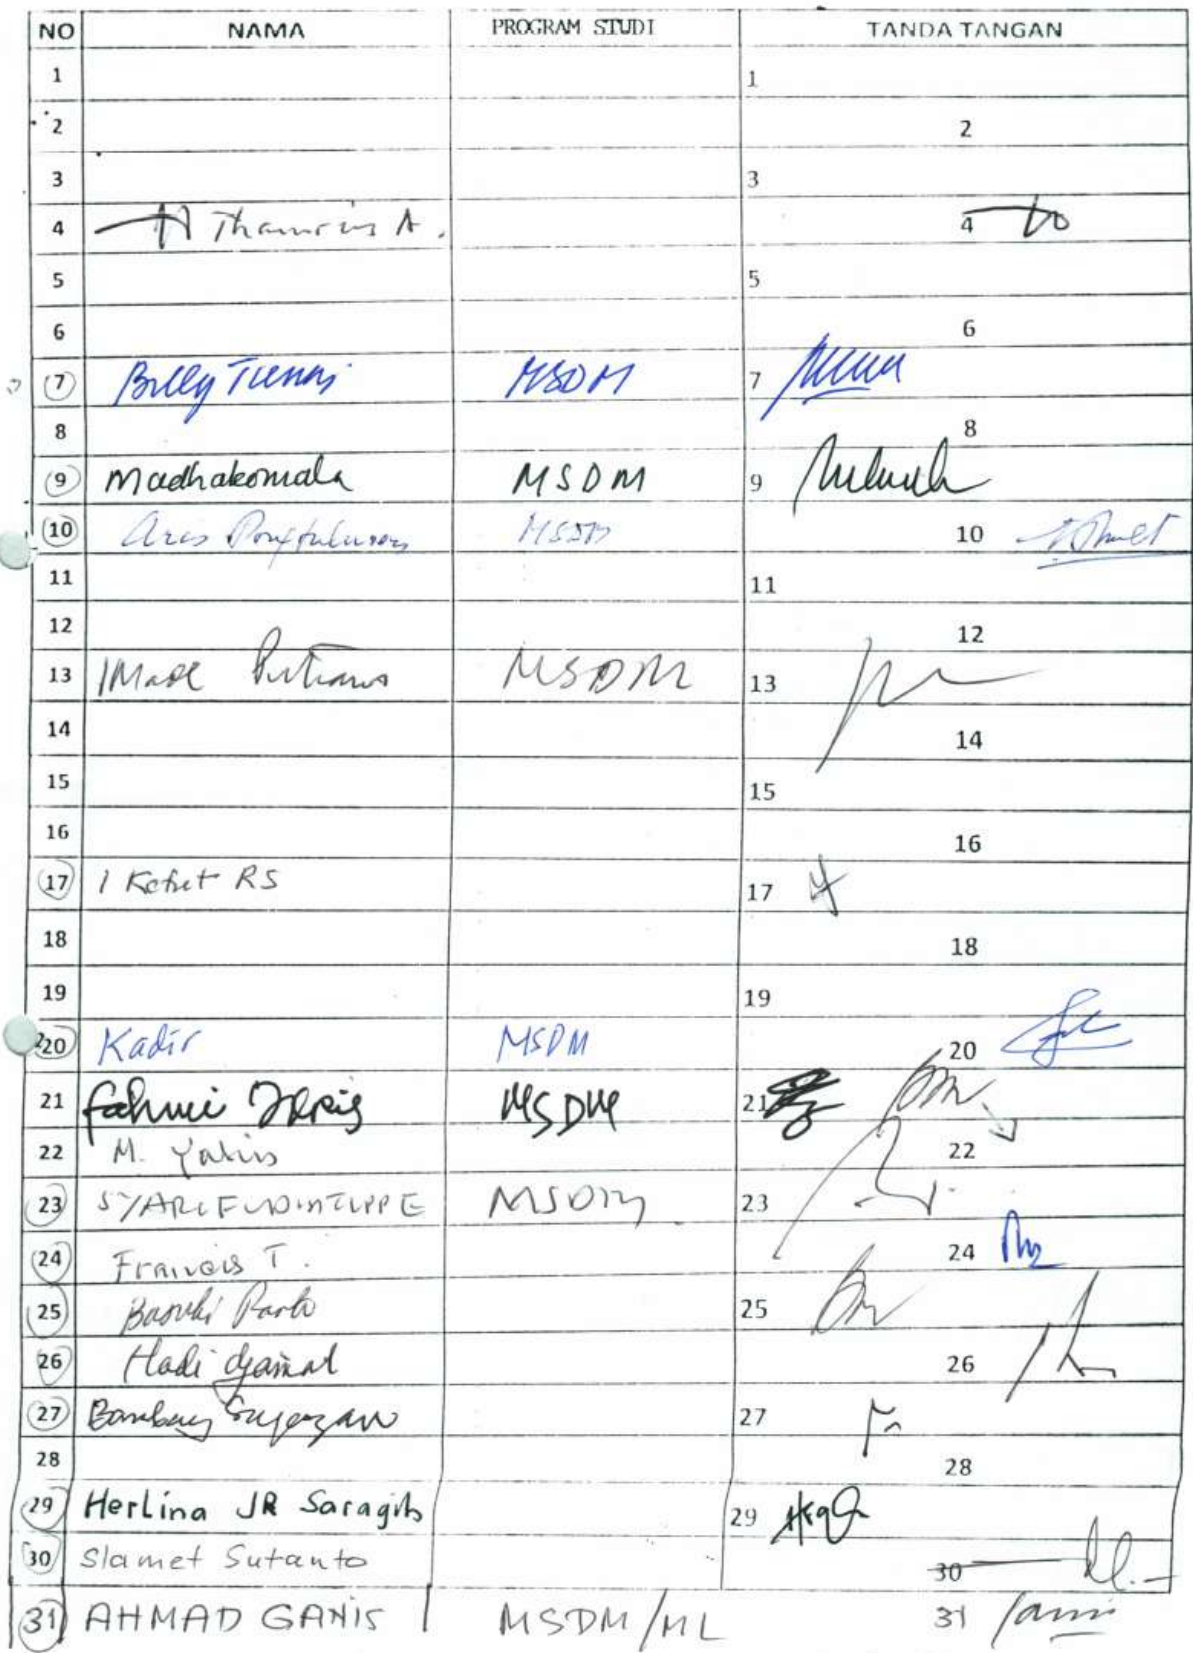 NO NAMA PROGRAM STUDI TANDA TANGAN
1 1
2 2
3 3
4 A. 4
5 5
6 6
7 Billy MSDM 7
8 8
9 Madhakomala MSDM 9
10 Aris MSDM 10
11 11
12 12
13 I Made MSDM 13
14 14
15 15
16 16
17 I Ketut RS 17
18 18
19 19
20 Kadir MSDM 20
21 Fahmi Idris MSDM 21
22 M. Yahis 22
23 MSDM 23
24 Francis T. 24
25 Basuki 25
26 Hadi djamal 26
27 Bambang 27
28 28
29 Herlina JR Saragih 29
30 Slamet Sutanto 30
31 AHMAD GANIS MSDM/ML 31